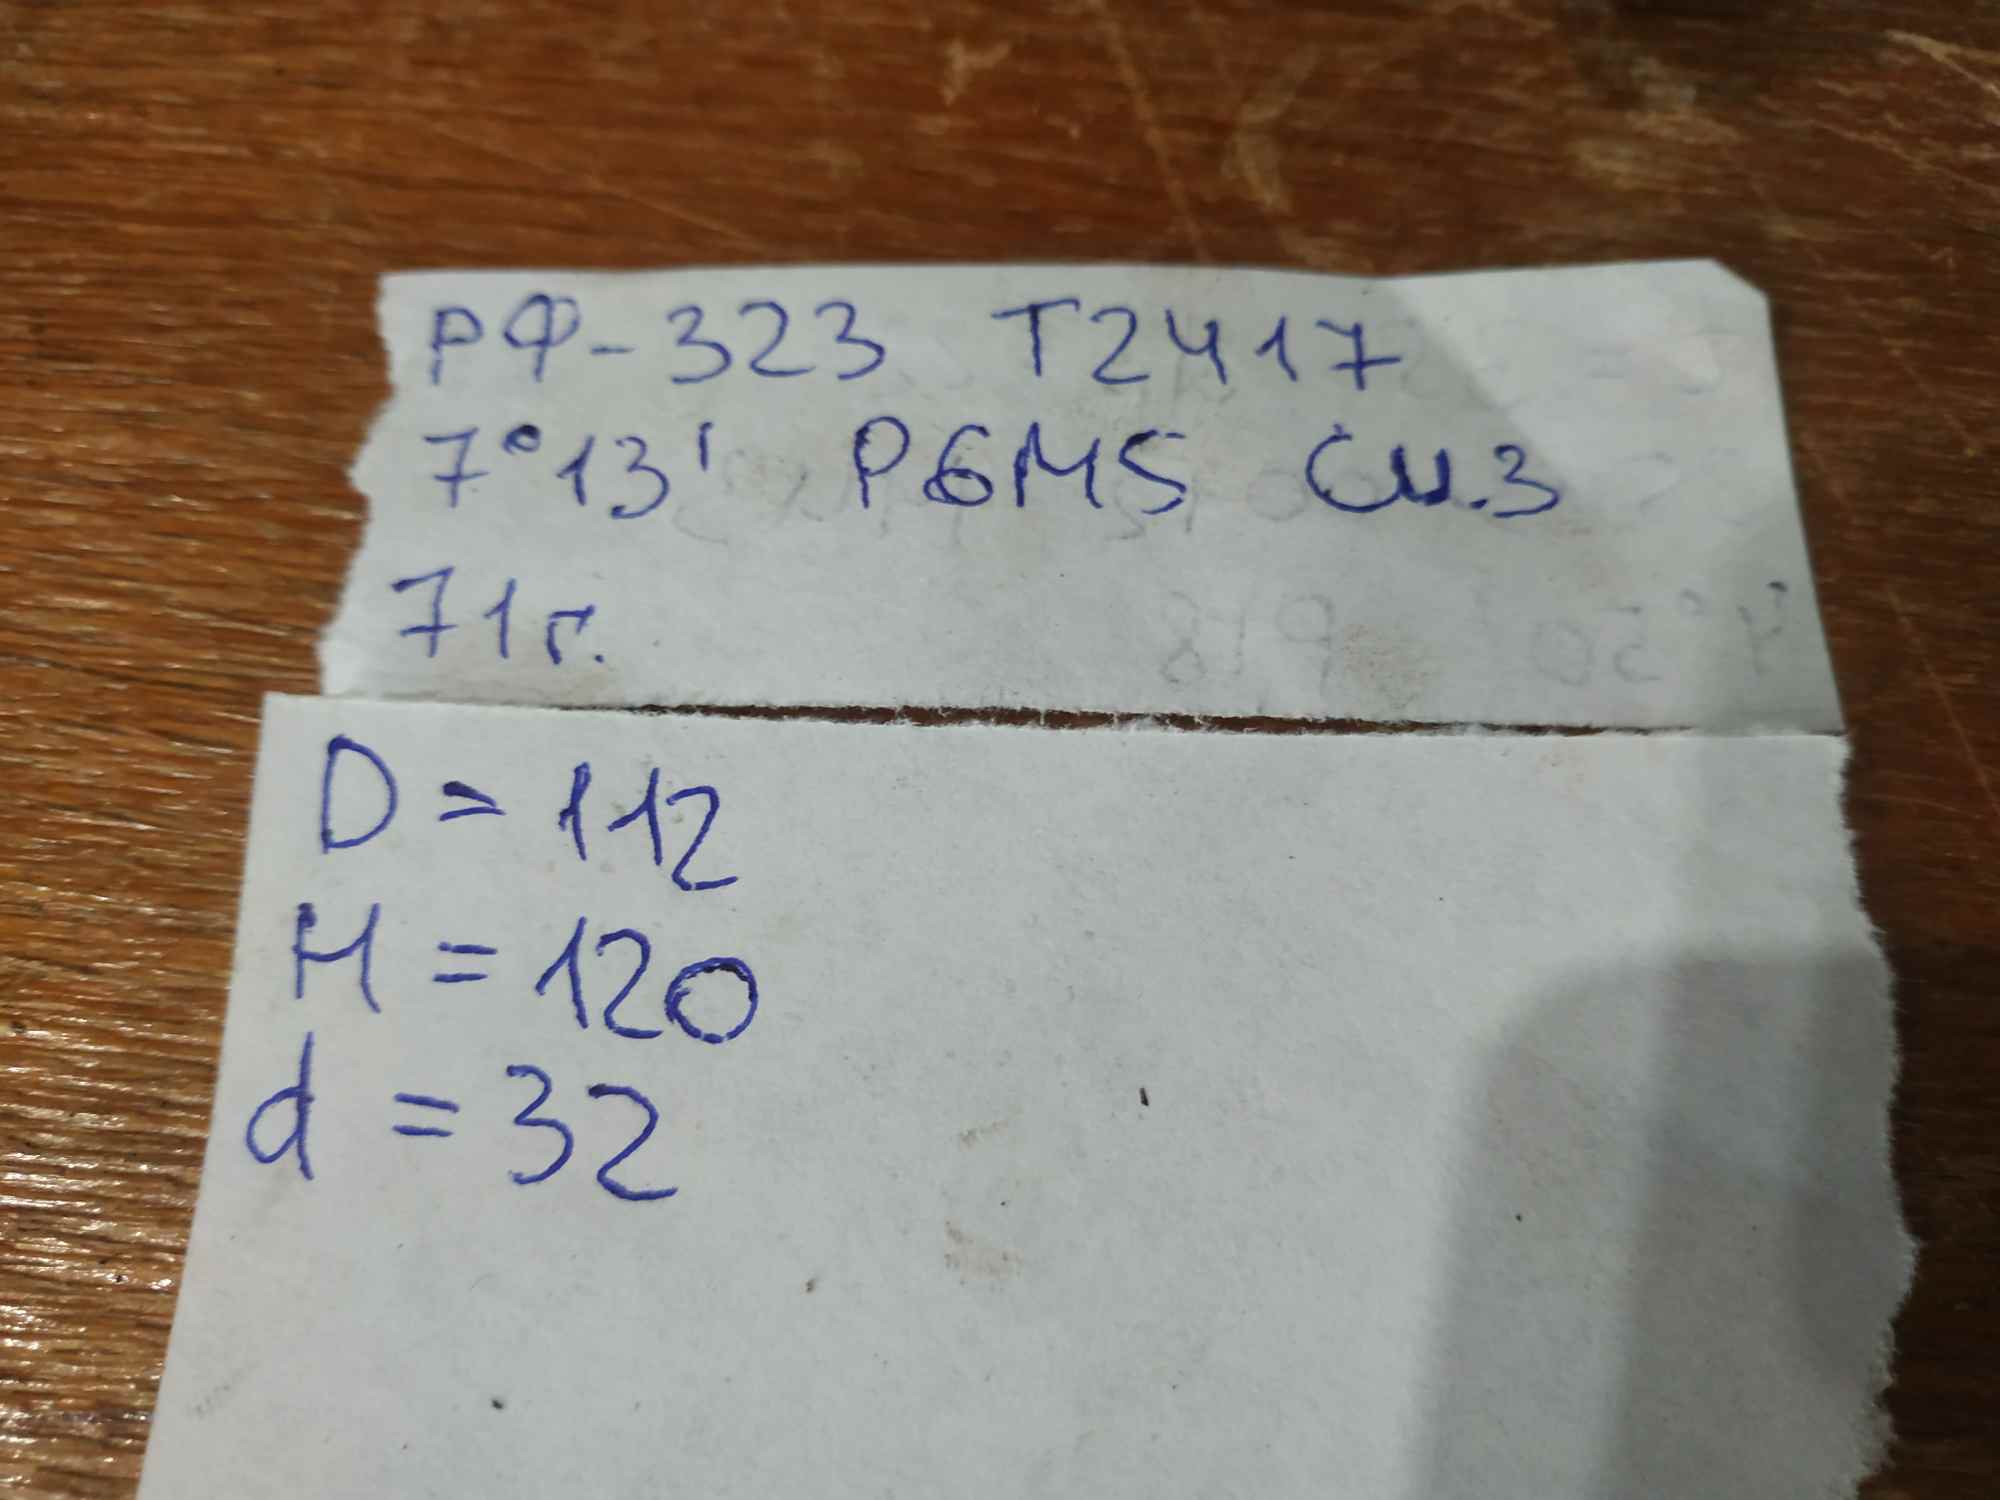 РФ-323 Т2417
7°13' Р6М5 См.3
71г.
D = 112
H = 120
d = 32